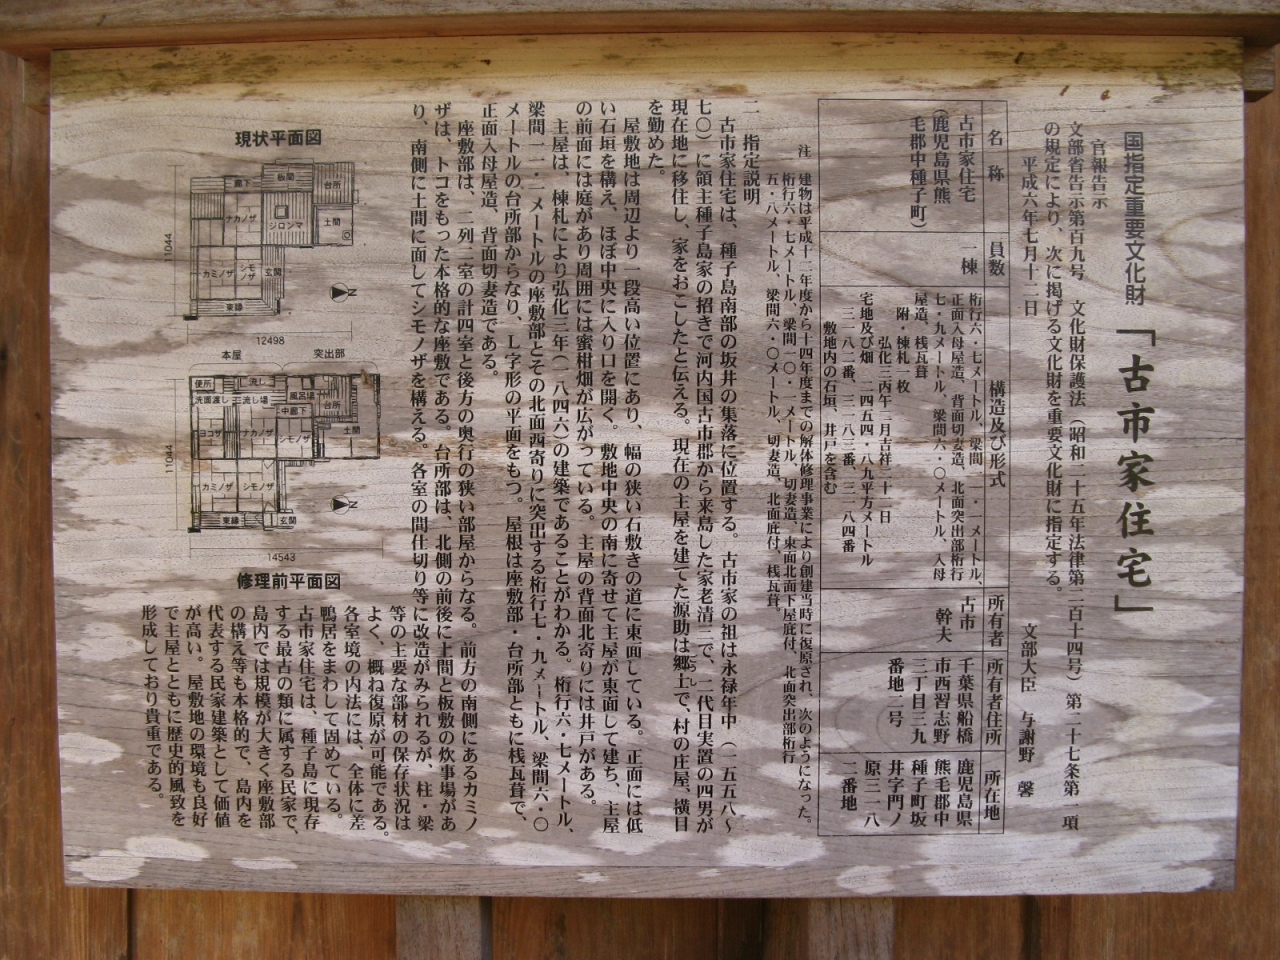 国指定重要文化財 「古市家住宅」
一 官報告示
文部省告示第百九号 文化財保護法(昭和二十五年法律第二百十四号)第二十七条第一項
の規定により、次に掲げる文化財を重要文化財に指定する。
平成六年七月十二日 文部大臣 与謝野 馨
名称
古市家住宅
(鹿児島県熊
毛郡中種子町)
員数
一棟
構造及び形式
桁行六・七メートル、梁間一一・一メートル、
正面入母屋造、背面切妻造、北面突出部桁行
七・九メートル、梁間六・〇メートル、入母
屋造、桟瓦葺
附・棟札一枚
弘化三丙午二月吉祥二十一日
宅地及び畑 二四五四・八九平方メートル
三一八二番、三一八三番、三一八四番
敷地内の石垣、井戸を含む
所有者
古市
幹夫
所有者住所
千葉県船橋
市西習志野
三丁目三九
番地二号
所在地
鹿児島県
熊毛郡中
種子町坂
井字門ノ
原三一八
二番地
注 建物は平成十二年度から十四年度までの解体修理事業により創建当時に復原され、次のようになった。
桁行六・七メートル、梁間一〇・一メートル、切妻造、東面北面下屋庇付、北面突出部桁行
五・八メートル、梁間六・〇メートル、切妻造、北面庇付、桟瓦葺。
二 指定説明
古市家住宅は、種子島南部の坂井の集落に位置する。古市家の祖は永禄年中(一五五八〜
七〇)に領主種子島家の招きで河内国古市郡から来島した家老清三で、二代目実置の四男が
現在地に移住し、家をおこしたと伝える。現在の主屋を建てた源助は郷士で、村の庄屋、横目
を勤めた。
屋敷地は周辺より一段高い位置にあり、幅の狭い石敷きの道に東面している。正面には低
い石垣を構え、ほぼ中央に入り口を開く。敷地中央の南に寄せて主屋が東面して建ち、主屋
の前面には庭があり周囲には蜜柑畑が広がっている。主屋の背面北寄りには井戸がある。
主屋は、棟札により弘化三年(一八四六)の建築であることがわかる。桁行六・七メートル、
梁間一一・一メートルの座敷部とその北面西寄りに突出する桁行七・九メートル、梁間六・〇
メートルの台所部からなり、L字形の平面をもつ。屋根は座敷部・台所部ともに桟瓦葺で、
正面入母屋造、背面切妻造である。
座敷部は、二列二室の計四室と後方の奥行の狭い部屋からなる。前方の南側にあるカミノ
ザは、トコをもった本格的な座敷である。台所部は、北側の前後に土間と板敷の炊事場があ
り、南側に土間に面してシモノザを構える。各室の間仕切り等に改造がみられるが、柱・梁
等の主要な部材の保存状況は
よく、概ね復原が可能である。
各室境の内法には、全体に差
鴨居をまわして固めている。
古市家住宅は、種子島に現存
する最古の類に属する民家で、
島内では規模が大きく座敷部
の構え等も本格的で、島内を
代表する民家建築として価値
が高い。屋敷地の環境も良好
で主屋とともに歴史的風致を
形成しており貴重である。
現状平面図
廊下
板間
台所
ナカノザ
ジロンマ
土間
カミノザ
シモノザ
玄関
東縁
11044
12498
N
本屋 突出部
便所
洗面
渡し
流し
流し場
風呂場
中廊下
台所
土間
ヨコザ
ナカノザ
シモノザ
カミノザ
シモノザ
東縁
玄関
11044
14543
N
修理前平面図